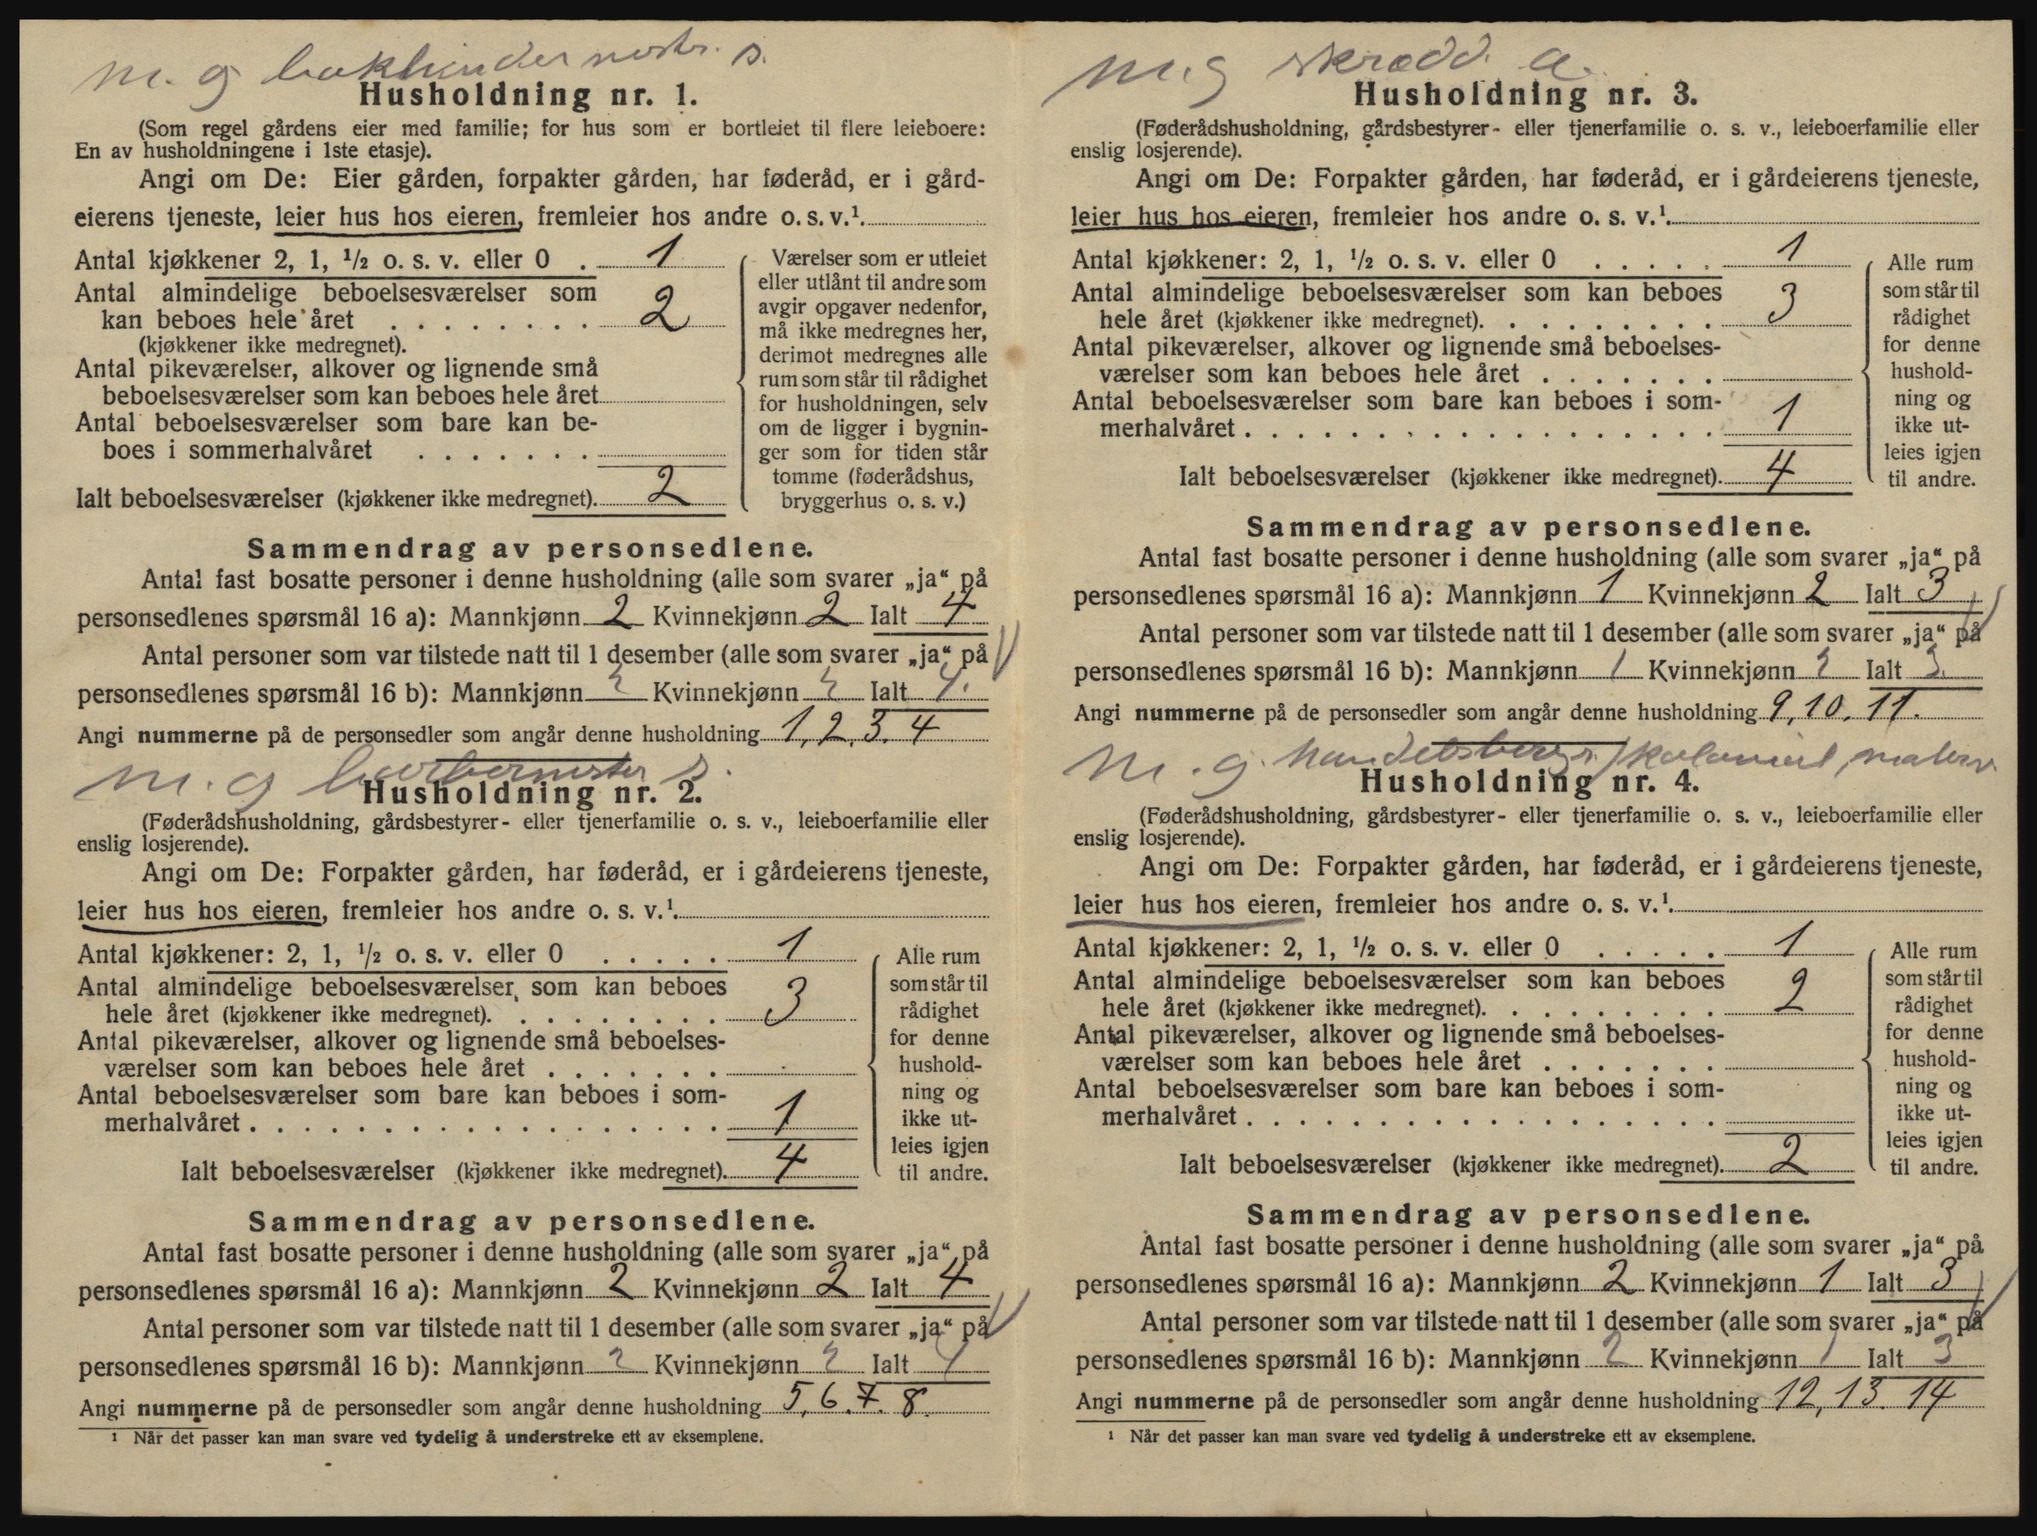 m. g bokbindermester s.
Husholdning nr. 1.
(Som regel gårdens eier med familie; for hus som er bortleiet til flere leieboere:
En av husholdningene i 1ste etasje).
Angi om De: Eier gården, forpakter gården, har føderåd, er i gård-
eierens tjeneste, leier hus hos eieren, fremleier hos andre o. s. v.¹
Antal kjøkkener 2, 1, ½ o. s. v. eller 0 . 1
Antal almindelige beboelsesværelser som
kan beboes hele året . . . . . . . . 2
(kjøkkener ikke medregnet).
Antal pikeværelser, alkover og lignende små
beboelsesværelser som kan beboes hele året
Antal beboelsesværelser som bare kan be-
boes i sommerhalvåret . . . . . . .
Ialt beboelsesværelser (kjøkkener ikke medregnet). 2
Værelser som er utleiet
eller utlånt til andre som
avgir opgaver nedenfor,
må ikke medregnes her,
derimot medregnes alle
rum som står til rådighet
for husholdningen, selv
om de ligger i bygnin-
ger som for tiden står
tomme (føderådshus,
bryggerhus o. s. v.)
Sammendrag av personsedlene.
Antal fast bosatte personer i denne husholdning (alle som svarer „ja“ på
personsedlenes spørsmål 16 a): Mannkjønn 2 Kvinnekjønn 2 Ialt 4
Antal personer som var tilstede natt til 1 desember (alle som svarer „ja“ på
personsedlenes spørsmål 16 b): Mannkjønn 2 Kvinnekjønn 2 Ialt 4.
Angi nummerne på de personsedler som angår denne husholdning 1, 2, 3. 4
m. g barbermester s.
Husholdning nr. 2.
(Føderådshusholdning, gårdsbestyrer- eller tjenerfamilie o. s. v., leieboerfamilie eller
enslig losjerende).
Angi om De: Forpakter gården, har føderåd, er i gårdeierens tjeneste,
leier hus hos eieren, fremleier hos andre o. s. v.¹
Antal kjøkkener: 2, 1, ½ o. s. v. eller 0 . . . . . 1
Antal almindelige beboelsesværelser som kan beboes
hele året (kjøkkener ikke medregnet). . . . . . . . . 3
Antal pikeværelser, alkover og lignende små beboelses-
værelser som kan beboes hele året . . . . . . .
Antal beboelsesværelser som bare kan beboes i som-
merhalvåret . . . . . . . . . . . . . . . . . . 1
Ialt beboelsesværelser (kjøkkener ikke medregnet). 4
Alle rum
som står til
rådighet
for denne
hushold-
ning og
ikke ut-
leies igjen
til andre.
Sammendrag av personsedlene.
Antal fast bosatte personer i denne husholdning (alle som svarer „ja“ på
personsedlenes spørsmål 16 a): Mannkjønn 2 Kvinnekjønn 2 Ialt 4
Antal personer som var tilstede natt til 1 desember (alle som svarer „ja“ på
personsedlenes spørsmål 16 b): Mannkjønn 2 Kvinnekjønn 2 Ialt 4
Angi nummerne på de personsedler som angår denne husholdning 5, 6. 7. 8.
¹ Når det passer kan man svare ved tydelig å understreke ett av eksemplene.
m. g skrædd. a.
Husholdning nr. 3.
(Føderådshusholdning, gårdsbestyrer- eller tjenerfamilie o. s. v., leieboerfamilie eller
enslig losjerende).
Angi om De: Forpakter gården, har føderåd, er i gårdeierens tjeneste,
leier hus hos eieren, fremleier hos andre o. s. v.¹
Antal kjøkkener: 2, 1, ½ o. s. v. eller 0 . . . . . 1
Antal almindelige beboelsesværelser som kan beboes
hele året (kjøkkener ikke medregnet). . . . . . . . . 3
Antal pikeværelser, alkover og lignende små beboelses-
værelser som kan beboes hele året . . . . . . .
Antal beboelsesværelser som bare kan beboes i som-
merhalvåret . . . . . . . . . . . . . . . . . . 1
Ialt beboelsesværelser (kjøkkener ikke medregnet). 4
Alle rum
som står til
rådighet
for denne
hushold-
ning og
ikke ut-
leies igjen
til andre.
Sammendrag av personsedlene.
Antal fast bosatte personer i denne husholdning (alle som svarer „ja“ på
personsedlenes spørsmål 16 a): Mannkjønn 1 Kvinnekjønn 2 Ialt 3
Antal personer som var tilstede natt til 1 desember (alle som svarer „ja“ på
personsedlenes spørsmål 16 b): Mannkjønn 1 Kvinnekjønn 2 Ialt 3.
Angi nummerne på de personsedler som angår denne husholdning 9, 10. 11.
m. g. kolonial
Husholdning nr. 4.
(Føderådshusholdning, gårdsbestyrer- eller tjenerfamilie o. s. v., leieboerfamilie eller
enslig losjerende).
Angi om De: Forpakter gården, har føderåd, er i gårdeierens tjeneste,
leier hus hos eieren, fremleier hos andre o. s. v.¹
Antal kjøkkener: 2, 1, ½ o. s. v. eller 0 . . . . . 1
Antal almindelige beboelsesværelser som kan beboes
hele året (kjøkkener ikke medregnet). . . . . . . . . 2
Antal pikeværelser, alkover og lignende små beboelses-
værelser som kan beboes hele året . . . . . . .
Antal beboelsesværelser som bare kan beboes i som-
merhalvåret . . . . . . . . . . . . . . . . . .
Ialt beboelsesværelser (kjøkkener ikke medregnet). 2
Alle rum
som står til
rådighet
for denne
hushold-
ning og
ikke ut-
leies igjen
til andre.
Sammendrag av personsedlene.
Antal fast bosatte personer i denne husholdning (alle som svarer „ja“ på
personsedlenes spørsmål 16 a): Mannkjønn 2 Kvinnekjønn 1 Ialt 3
Antal personer som var tilstede natt til 1 desember (alle som svarer „ja“ på
personsedlenes spørsmål 16 b): Mannkjønn 2 Kvinnekjønn 1 Ialt 3
Angi nummerne på de personsedler som angår denne husholdning 12, 13. 14
¹ Når det passer kan man svare ved tydelig å understreke ett av eksemplene.